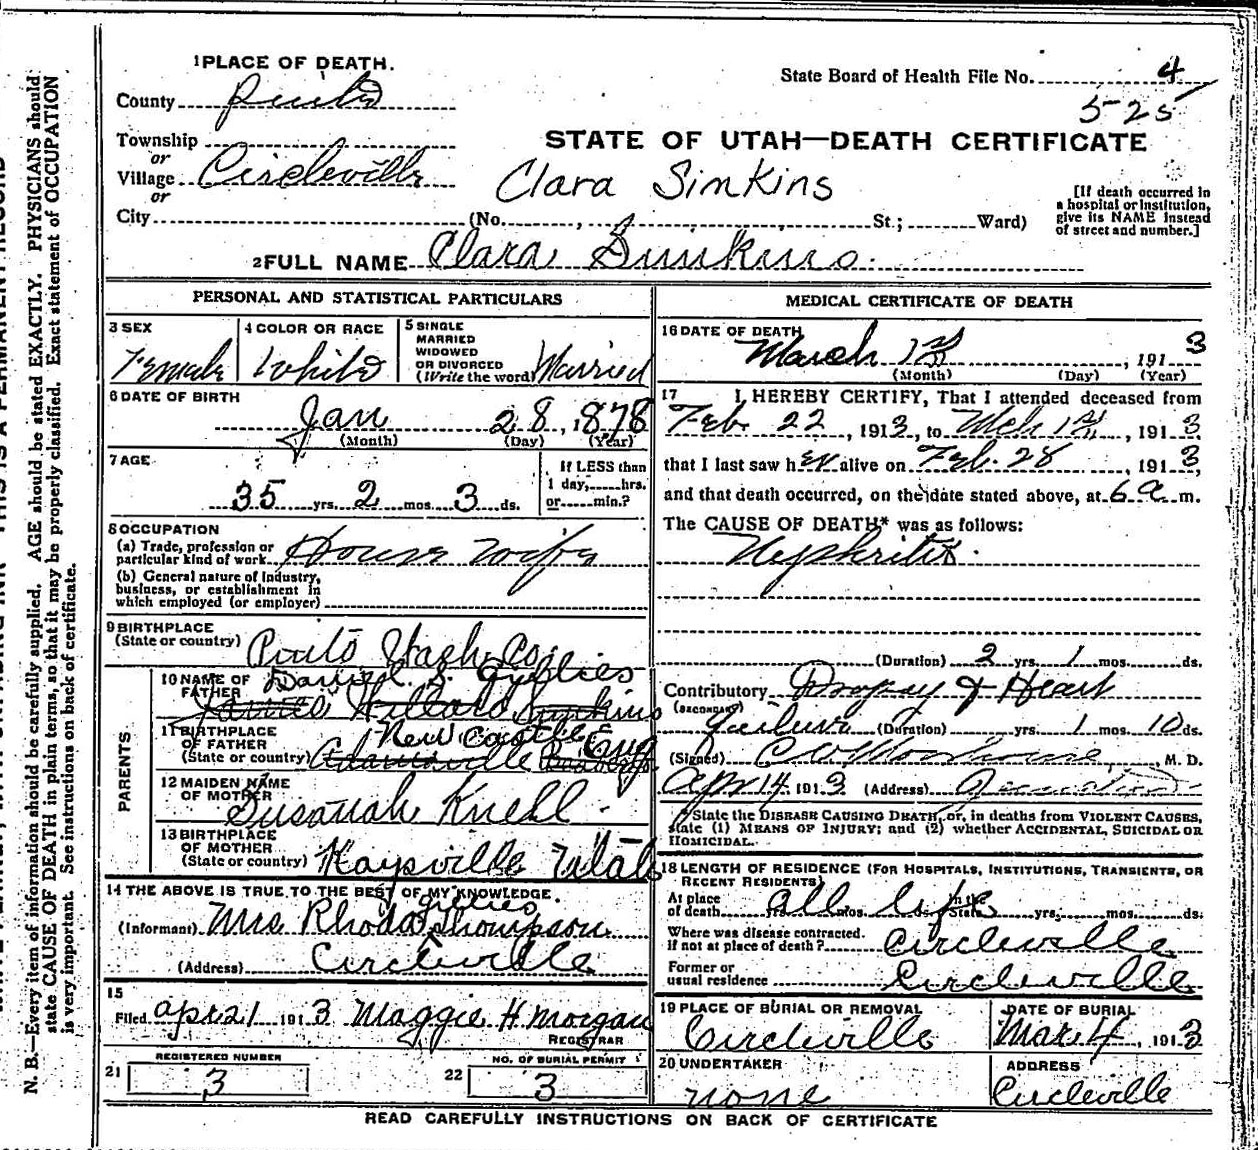 1 PLACE OF DEATH.
State Board of Health File No. 4
County Piute
5-25
Township
or
STATE OF UTAH—DEATH CERTIFICATE
Village Circleville
Clara Simkins
or
City (No. , St.; Ward)
[If death occurred in
a hospital or institution,
give its NAME instead
of street and number.]
2 FULL NAME Clara Simkins.
PERSONAL AND STATISTICAL PARTICULARS
3 SEX
Female
4 COLOR OR RACE
White
5 SINGLE
MARRIED
WIDOWED
OR DIVORCED
(Write the word) Married
6 DATE OF BIRTH
Jan 28, 1878
(Month) (Day) (Year)
7 AGE
35 yrs. 2 mos. 3 ds.
If LESS than
1 day, hrs.
or min.?
8 OCCUPATION
(a) Trade, profession or
particular kind of work House wife
(b) General nature of industry,
business, or establishment in
which employed (or employer)
9 BIRTHPLACE
(State or country) Pinto Wash. Co.
PARENTS
10 NAME OF
FATHER
Daniel S. Gillies
James Willard Simkins
11 BIRTHPLACE
OF FATHER
(State or country)
New Castle Eng
Adamsville
12 MAIDEN NAME
OF MOTHER
Susanah Knell.
13 BIRTHPLACE
OF MOTHER
(State or country) Kaysville Utah
14 THE ABOVE IS TRUE TO THE BEST OF MY KNOWLEDGE.
gillies
(Informant) Mrs Rhoda Thompson
(Address) Circleville
15
Filed apr 21 1913 Maggie H. Morgan
REGISTRAR
REGISTERED NUMBER
21 3
NO. OF BURIAL PERMIT
22 3
MEDICAL CERTIFICATE OF DEATH
16 DATE OF DEATH
March 1st, 1913
(Month) (Day) (Year)
17 I, HEREBY CERTIFY, That I attended deceased from
Feb. 22, 1913, to Mch 1st, 1913
that I last saw her alive on Feb. 28, 1913,
and that death occurred, on the date stated above, at 6 a m.
The CAUSE OF DEATH* was as follows:
Nephritis.
(Duration) 2 yrs. 1 mos. ds.
Contributory Dropsy & Heart
(SECONDARY)
Failure (Duration) yrs. 1 mos. 10 ds.
(Signed) , M. D.
Apr 14, 1913 (Address)
*State the DISEASE CAUSING DEATH, or, in deaths from VIOLENT CAUSES,
state (1) MEANS OF INJURY; and (2) whether ACCIDENTAL, SUICIDAL OR
HOMICIDAL.
18 LENGTH OF RESIDENCE (FOR HOSPITALS, INSTITUTIONS, TRANSIENTS, OR
RECENT RESIDENTS)
At place In the
of death yrs. mos. State yrs. mos. ds.
all life
Where was disease contracted.
if not at place of death? Circleville
Former or
usual residence Circleville
19 PLACE OF BURIAL OR REMOVAL
Circleville
DATE OF BURIAL
Mar 4, 1913
20 UNDERTAKER
none
ADDRESS
Circleville
READ CAREFULLY INSTRUCTIONS ON BACK OF CERTIFICATE
N. B.—Every item of information should be carefully supplied. AGE should be stated EXACTLY. PHYSICIANS should
state CAUSE OF DEATH in plain terms, so that it may be properly classified. Exact statement of OCCUPATION
is very important. See instructions on back of certificate.